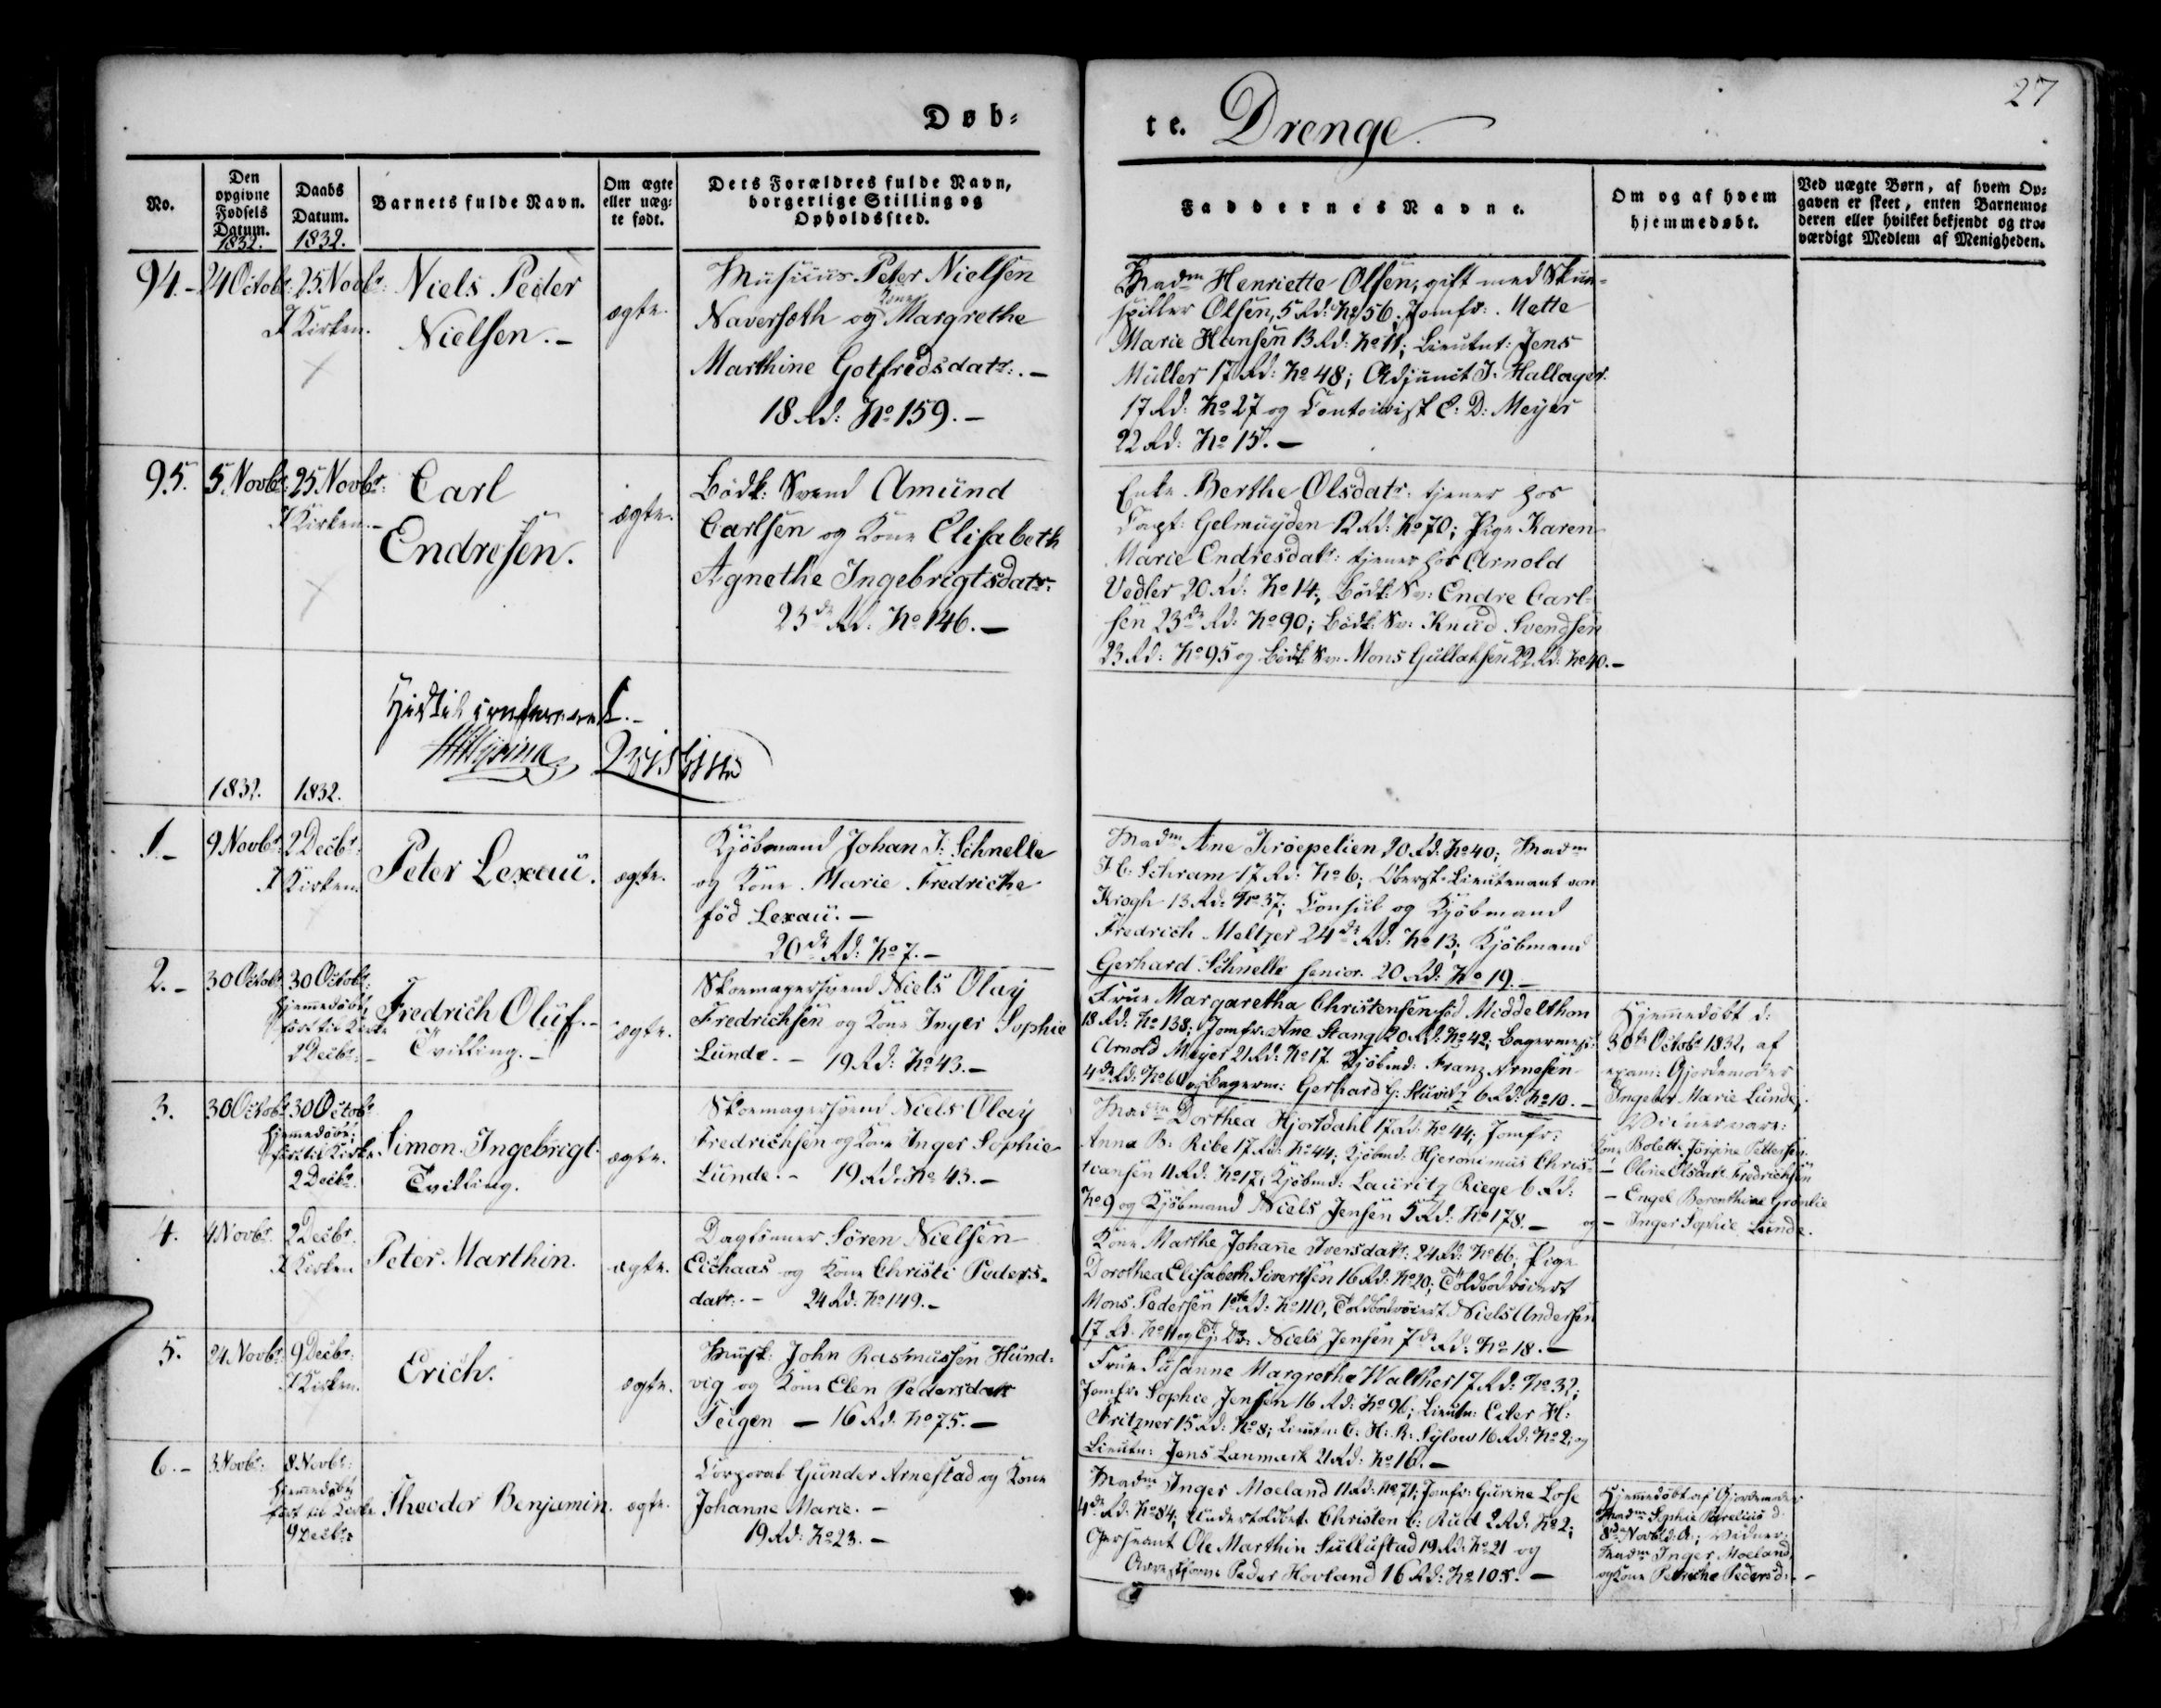 27
Døb-
te. Drenge.
No.
Den opgivne Fødsels Datum. 1832.
Daabs Datum. 1832.
Barnets fulde Navn.
Om ægte eller uæg-te født.
Dets Forældres fulde Navn, borgerlige Stilling og Opholdssted.
Faddernes Navne.
Om og af hvem hjemmedøbt.
Ved uægte Børn, af hvem Op-
gaven er skeet, enten Barnemo-
deren eller hvilket bekjendt og tro-
værdigt Medlem af Menigheden.
94.- 24 Octobr: 25 Novbr:
I Kirken.
Niels Peder
Nielsen.-
ægte.
Musicus Peter Nielsen
Naversøth og Kone Margrethe
Marthine Gotfredsdatr:.-
18 Rd: No 159.-
Madm Henriette Olsen, gift med Skue-
spiller Olsen, 5 Rd: No 56, Jomfr: Mette
Marie Hansen 13 Rd: No 11; Lieutnt: Jens
Müller 17 Rd: No 48; Adjunct J. Hallager
17 Rd: No 27 og Contoirist C: D: Meyer
22 Rd: No 15.-
95. 5 Novbr: 25 Novbr:
I Kirken.-
Carl
Endresen.
ægte.
Bødk: Svend Amund
Carlsen og Kone Elisabeth
Agnethe Ingebrigtsdatr:
23de Rd: No 146.-
Enke Berthe Olsdatr: tjener hos
Capt: Gelmuyden 12 Rd: No 70; Pige Karen
Marie Endresdatr: tjener hos Arnold
Vedler 20 Rd: No 14; Bødk: Sv: Endre Carl-
sen 23de Rd: No 90; Bødk: Sv: Knud Svendsen
23 Rd: No 95 og Bødk: Sv: Mons Gullaksen 22 Rd: No 40.-
Hidtil confereret.-
1832. 1832.
1.- 9 Novbr: 2 Decbr:
I Kirken.
Peter Lexau.
ægte.
Kjøbmand Johan J: Schnelle
og Kone Marie Fredriche
fød Lexau.-
20de Rd: No 7.-
Madm Ane Krøepelien 20 Rd: No 40; Madm
H C: Schram 17 Rd: No 6; Oberst-Lieutenant von
Krogh 13 Rd: No 37; Consul og Kjøbmand
Fredrich Meltzer 24de Rd: No 13; Kjøbmand
Gerhard Schnelle senior 20 Rd: No 19.-
2.- 30 Octobr: 30 Octobr:
hjemmedøbt,
ført til Kirke
2 Decbr:-
Fredrich Oluf.-
Tvilling.-
ægte.
Skoemagersvend Niels Olay
Fredrichsen og Kone Inger Sophie
Lunde.- 19 Rd: No 43.-
Frue Margaretha Christensen fød Middelthon
18 Rd: No 138; Jomfr: Ane Stang 20 Rd: No 42; Bagermest:
Arnold Meyer 21 Rd: No 17 Kjøbmd: Franz Arnesen
4de Rd: No 60 og Bagerm: Gerhard G: Stuwitz 6 Rd: No 10.-
Hjemmedøbt d:
30te Octobr 1832, af
exam: Gjordemoder
Ingebor Marie Lunde,
Vidner vare:
Kone Bolette Jørgine Pettersen
- Oline Olsdatr Fredrichsen
- Engel Berenthine Grønlie
og - Inger Sophie Lunde.
3. 30 Octobr 30 Octobr
hjemmedøbt,
ført til Kirke
2 Decbr
Simon Ingebrigt.
Tvilling.
ægte.
Skoemagersvend Niels Olay
Fredrichsen og Kone Inger Sophie
Lunde.- 19 Rd: No 43.-
Madm Dorthea Hjortdahl 17 Rd: No 44; Jomfr:
Anna B: Ribe 17 Rd: No 44; Kjøbmd: Hjeronimus Chris-
tiansen 11 Rd: No 17; Kjøbmd: Lauritz Riege 6 Rd:
No 9 og Kjøbmand Niels Jensen 5 Rd: No 178.-
4. 4 Novbr 2 Decbr.
I Kirken
Peter Marthin.
ægte.
Dagtønner Søren Nielsen
Eichaas og Kone Christi Peders-
datr:- 24 Rd: No 149.-
Kone Marthe Johane Iversdatr: 24 Rd: No 66; Pige
Dorothea Elisabeth Sivertsen 16 Rd: No 20; Toldbodrøiert
Mons Pedersen 1ste Rd: No 110, Toldbodrøiert Niels Andersen
17 Rd: No 11 og Niels Jensen 7de Rd: No 18.-
5. 24 Novbr: 9 Decbr:
I Kirken.
Erich.
ægte.
Musk: John Rasmussen Hund-
vig og Kone Elen Pedersdatr
Teigen - 16 Rd: No 75.-
Frue Susanne Margrethe Walther 17 Rd: No 32;
Jomfr: Sophie Jensen 16 Rd: No 96; Lieutn: Eiler H:
Fritzner 15 Rd: No 8; Lieutn: C: H: R: Sylow 16 Rd: No 2; og
Lieutn: Jens Lanmark 21 Rd: No 16.-
6.- 3 Novbr: 8 Novbr:
hjemmedøbt
ført til Kirke
9 Decbr:
Theodor Benjamin.
ægte.
Corporal Gunder Arnestad og Kone
Johanne Marie.-
19 Rd: No 23.-
Madm Inger Moeland 11 Rd: No 71; Jomfr: Gurine Lose
4de Rd: No 84; Christen C: Rud 2 Rd: No 2;
Sersiant Ole Marthin Sullustad 19 Rd: No 21 og
Peder Hovland 16 Rd: No 105.-
Hjemmedøbt af Gjordemoder
Madm Sophie d:
8de Novbr d: A:; Vidner:
Madm Inger Moeland,
og Kone Petriche Pedersd:-